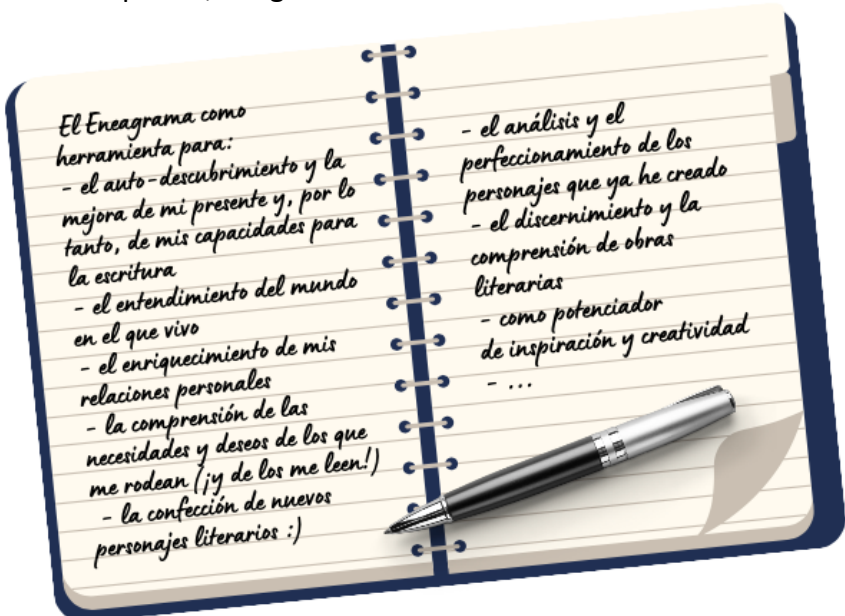 El Eneagrama como
herramienta para:
- el auto-descubrimiento y la
mejora de mi presente y, por lo
tanto, de mis capacidades para
la escritura
- el entendimiento del mundo
en el que vivo
- el enriquecimiento de mis
relaciones personales
- la comprensión de las
necesidades y deseos de los que
me rodean (¡y de los me leen!)
- la confección de nuevos
personajes literarios :)
- el análisis y el
perfeccionamiento de los
personajes que ya he creado
- el discernimiento y la
comprensión de obras
literarias
- como potenciador
de inspiración y creatividad
- ...